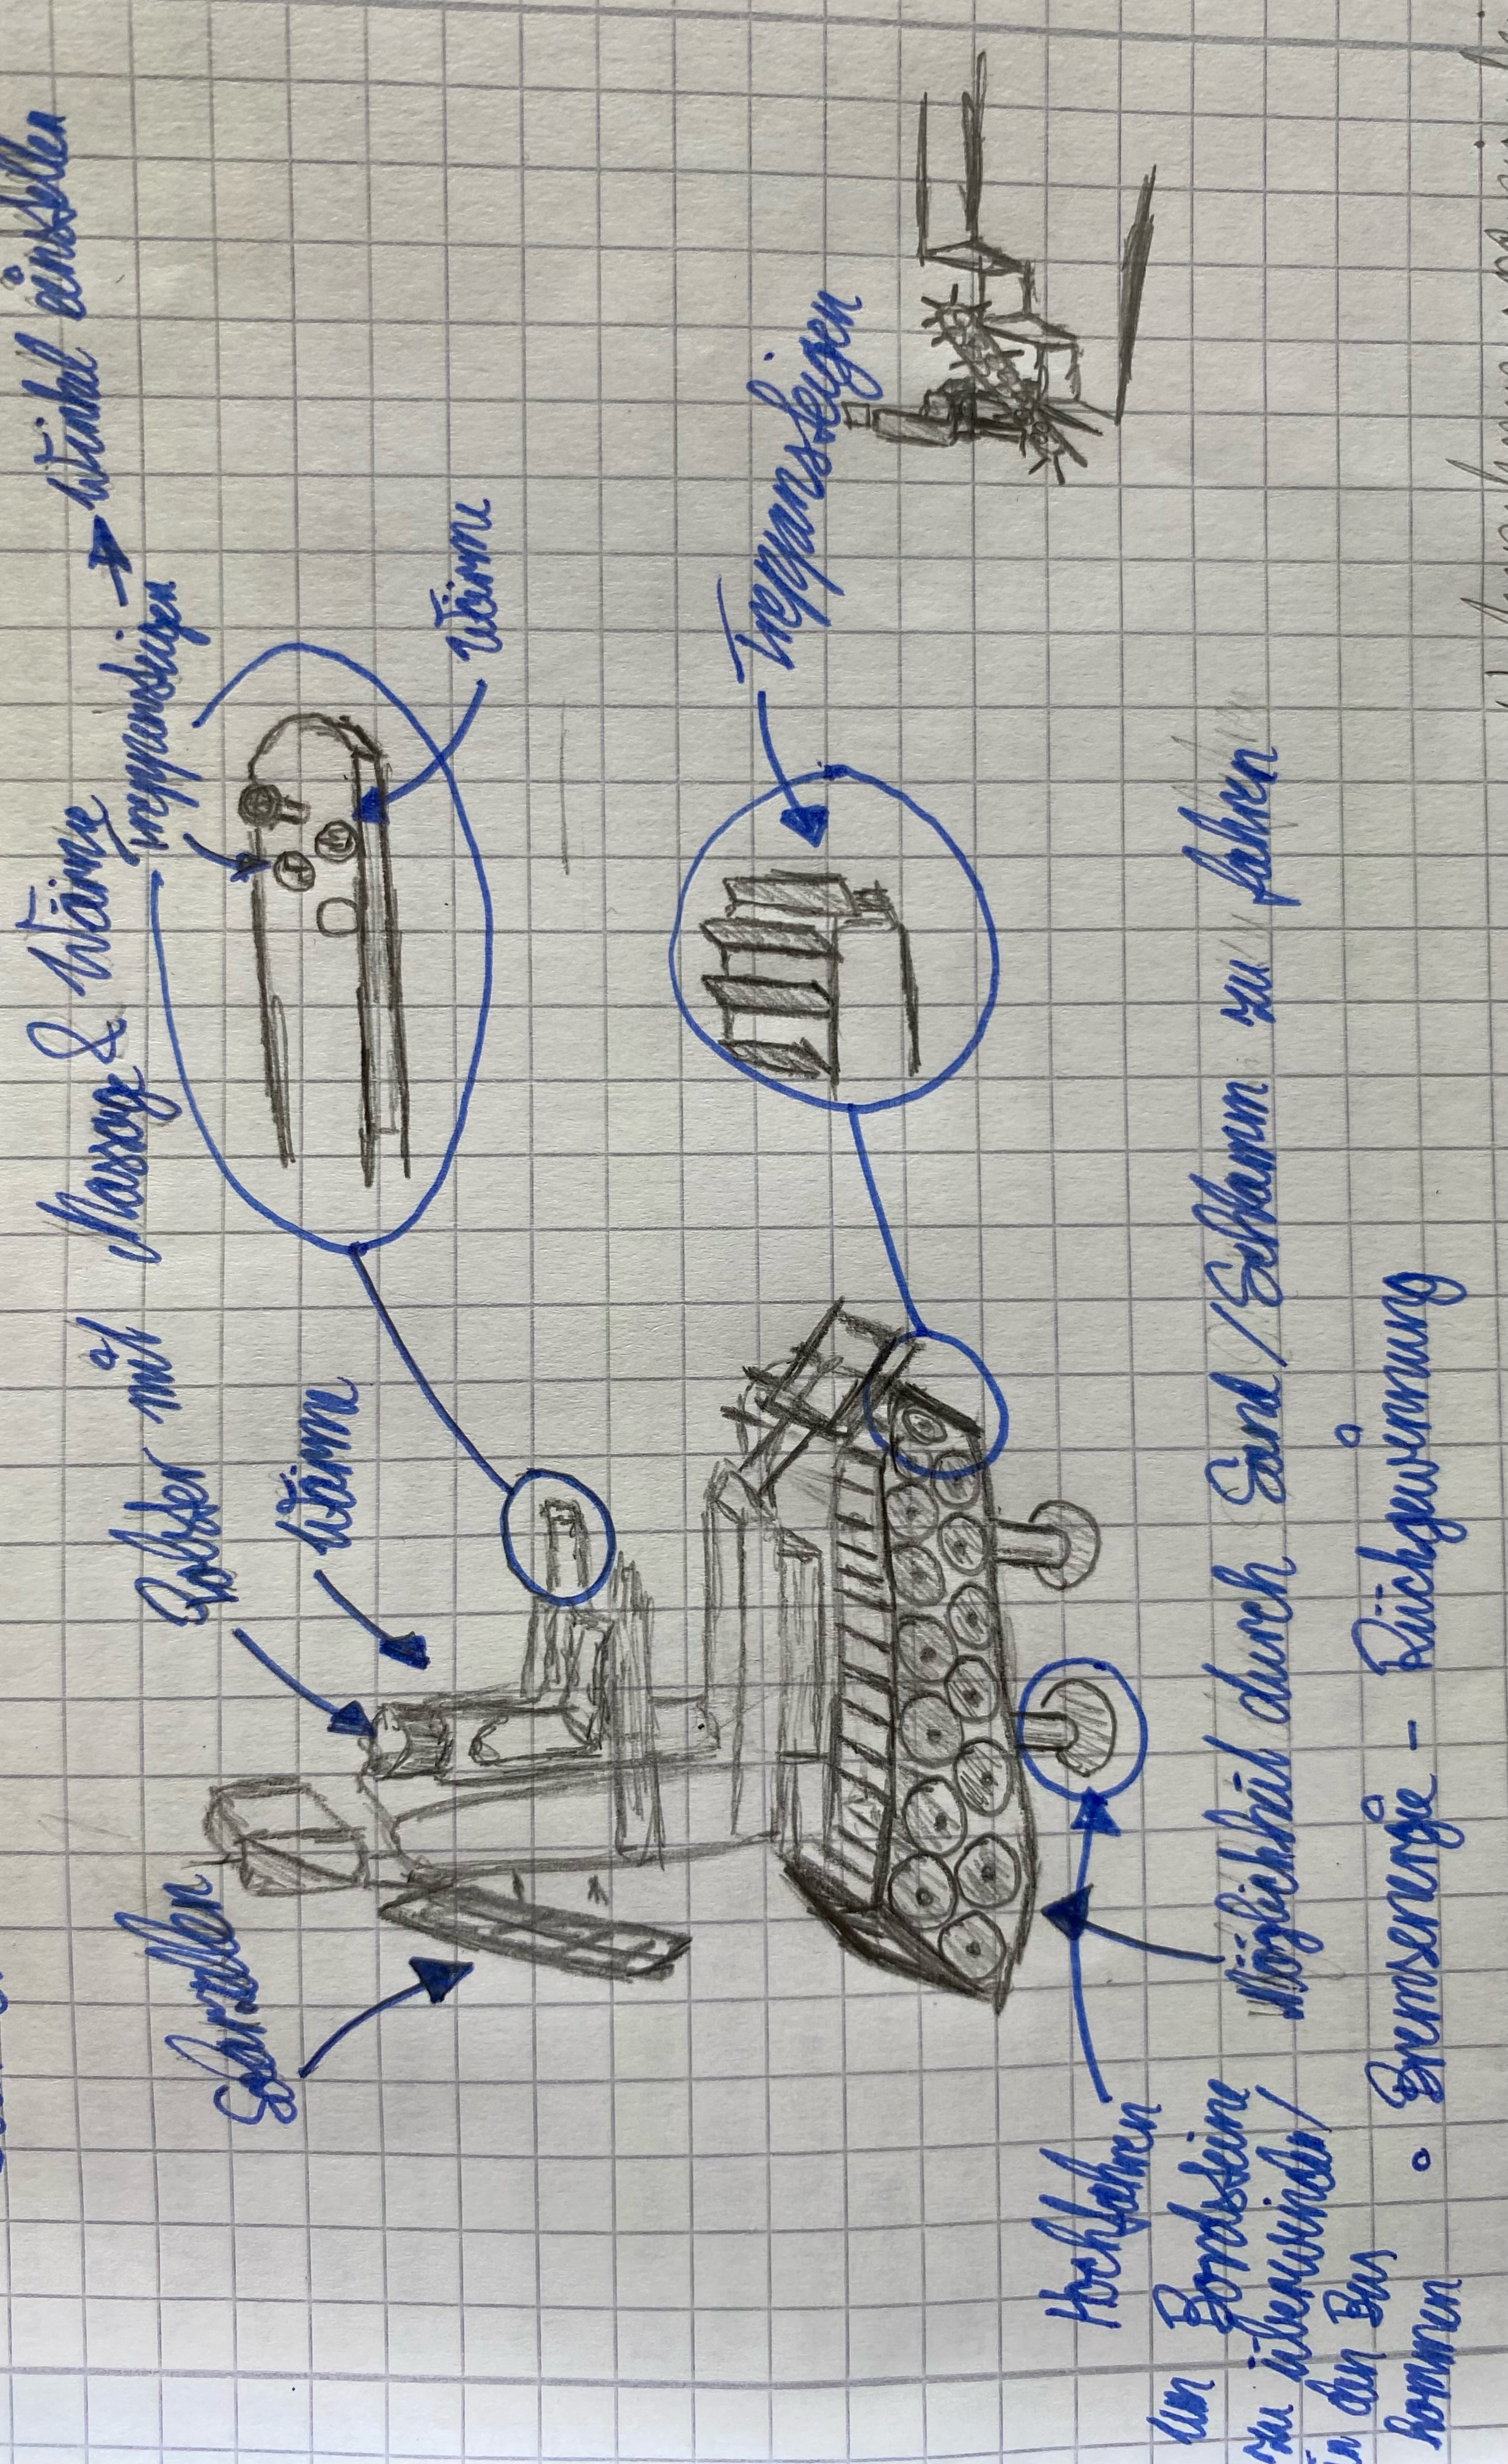 Polster mit Massage & Wärme
Wärme
Treppensteigen → Winkel einstellen
Wärme
Solarzellen
Treppensteigen
Hochfahren
um Bordsteine
zu überwinden/
in den Bus
kommen
Möglichkeit durch Sand/Schlamm zu fahren
• Bremsenergie - Rückgewinnung